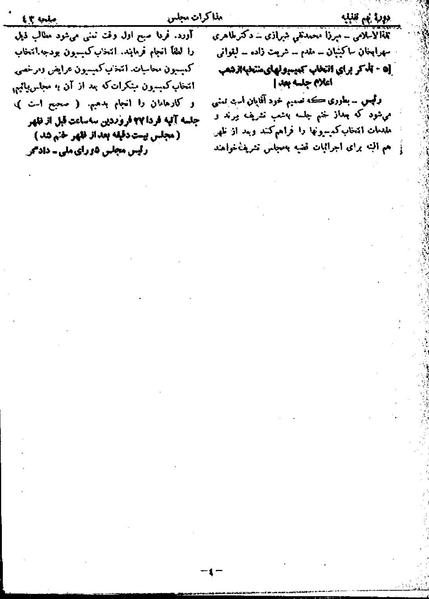 دورهٔ نهم تقنینیه
مذاکرات مجلس
صفحه ۴۳
ثقةالاسلامی - میرزا محمدتقی شیرازی - دکترطاهری
سهرابخان ساگینیان - مقدم - شریعت زاده - لیقوانی
[۵ - تذکر برای انتخاب کمیسیونهای منتخبه از شعب
اعلام جلسه بعد]
رئیس - بطوری که تصمیم خود آقایان است تمنی
می‌شود که بعد از ختم جلسه به‌شعب تشریف ببرند و
مقدمات انتخاب کمیسیونها را فراهم کنند وبعد از ظهر
هم البته برای اجرائیات قضیه به‌مجلس تشریف خواهند
آورد. فردا صبح اول وقت تمنی می‌شود مطالب ذیل
را لطفاً انجام فرمایند. انتخاب کمیسیون بودجه، انتخاب
کمیسیون محاسبات. انتخاب کمیسیون عرایض و مرخصی
انتخاب کمیسیون مبتکرات که بعد از آن به مجلس بیائیم
و کارهامان را انجام بدهیم. (صحیح است)،
جلسه آتیه فردا ۲۲ فروردین سه ساعت قبل از ظهر
(مجلس بیست دقیقه بعد از ظهر ختم شد)
رئیس مجلس شورای ملی - دادگر
-۴-